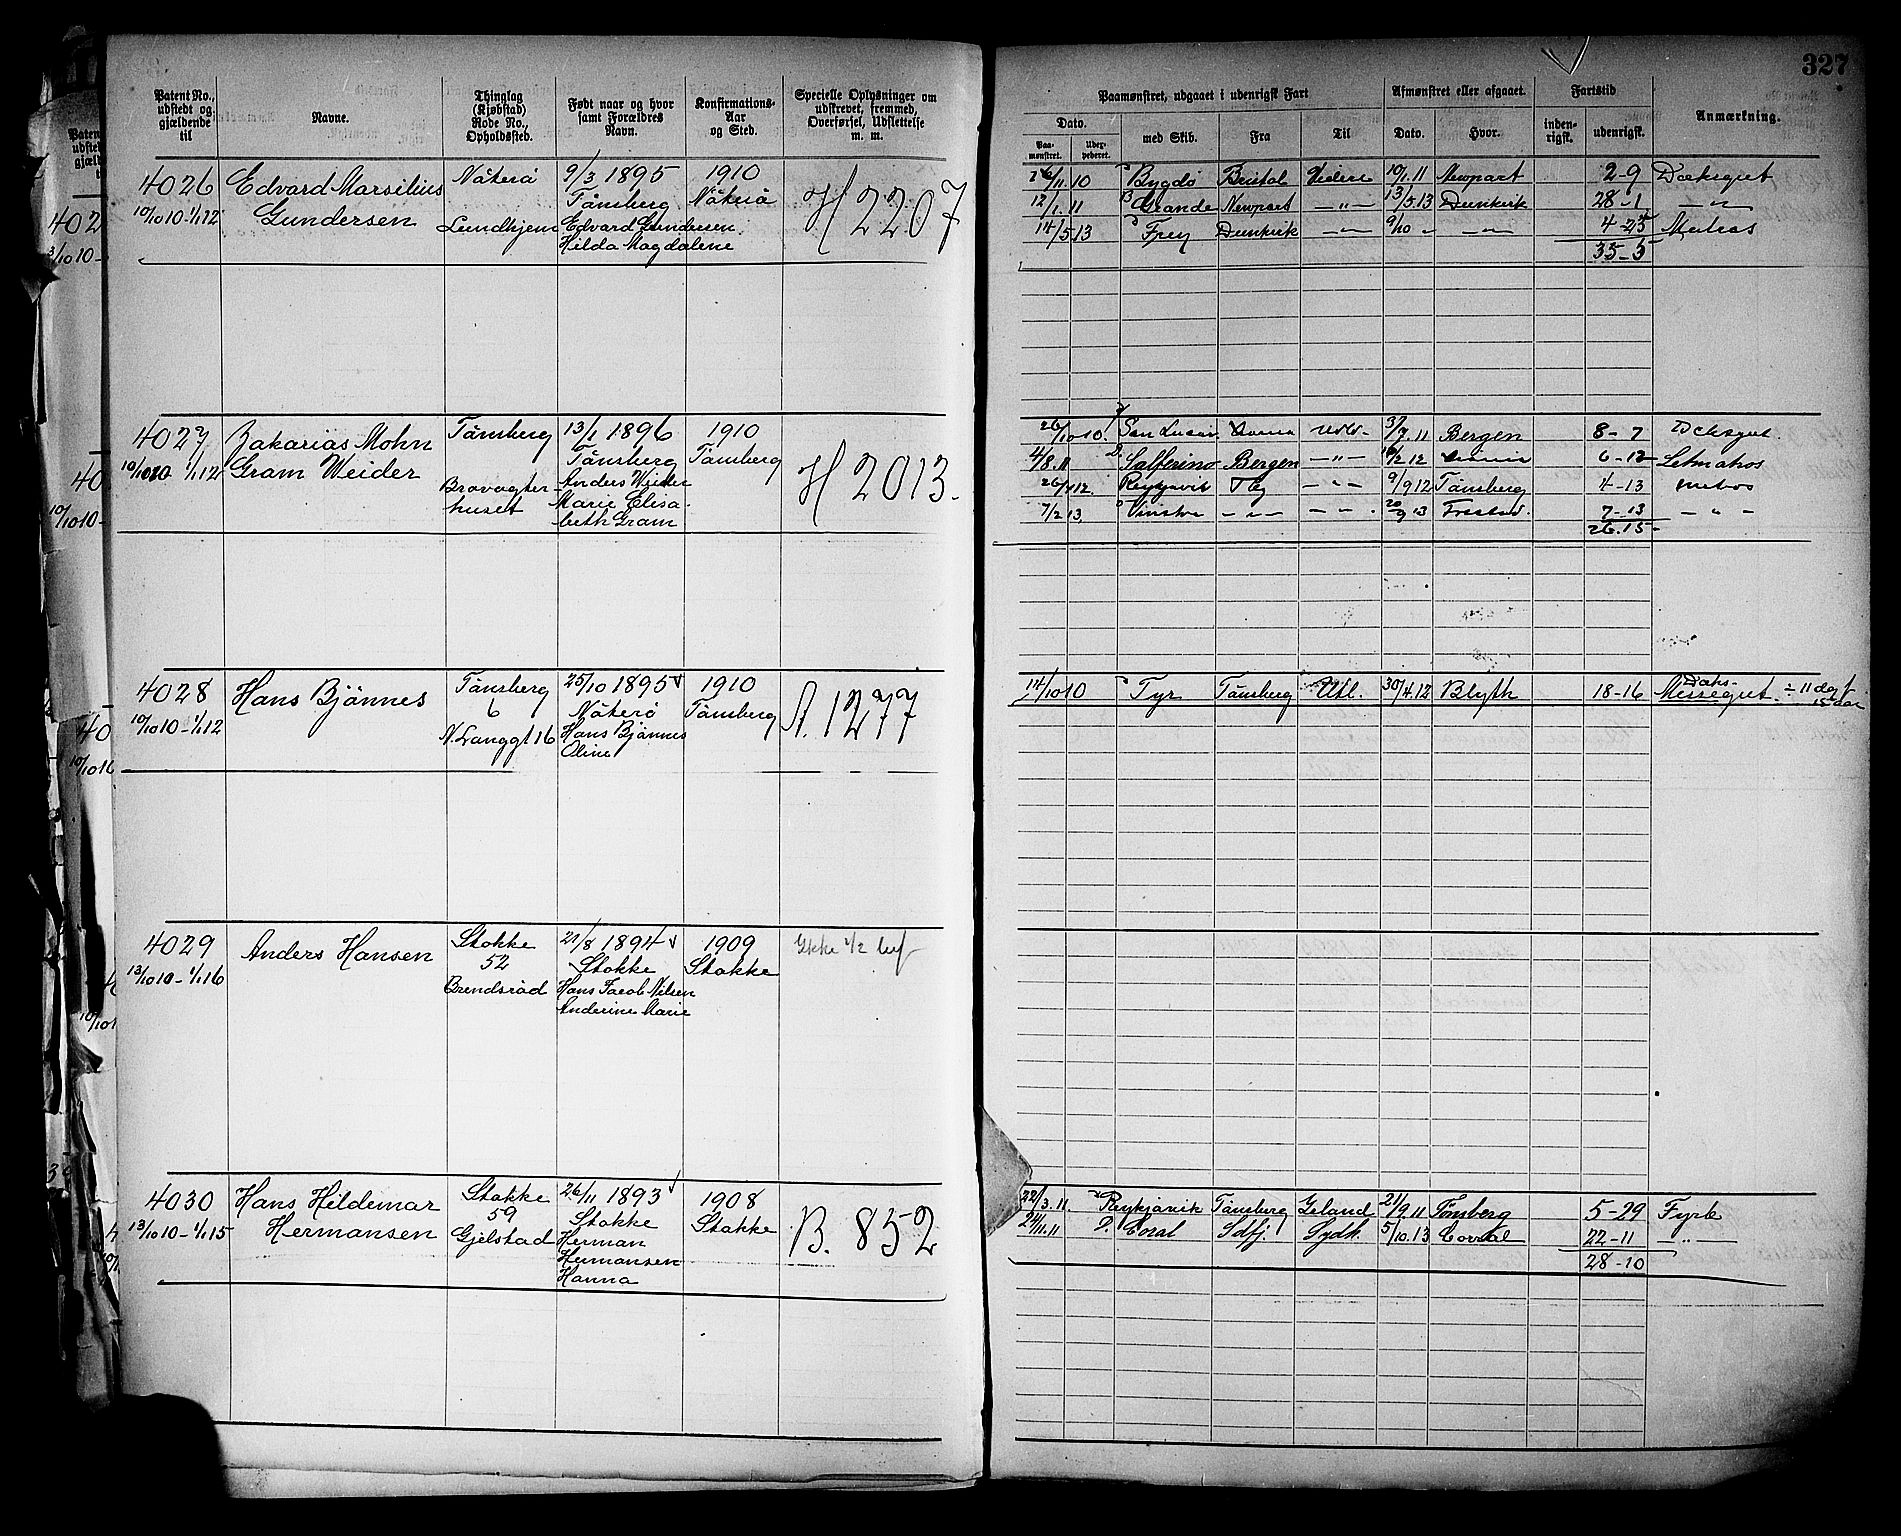 327
Patent No., udstedt og gjældende til
Navne.
Thinglag (Kjøbstad) Rode No., Opholdssted.
Født naar og hvor samt Forældres Navn.
Konfirmations-Aar og Sted.
Specielle Oplysninger om udskrevet, fremmed, Overførsel, Udslettelse m. m.
Paamønstret, udgaaet i udenrigsk Fart
Afmønstret eller afgaaet.
Fartstid
Anmærkning.
Dato.
med Skib.
Fra
Til
Dato.
Hvor.
inden-rigsk.
udenrigsk.
Paa-mønstret.
4026 Edvard Marsilius Nøterø 9/3 1895 1910 H 2207
10/10 10-1/1 12 Gundersen Lundhjem Tønsberg Nøterø
Edvard Gundersen
Hilda Magdalene
16/11 10 Bygdö Bristol 10/1 11 Newport 2-9 Dæksgut
12/1 11 Grande Newport -"- 13/5 13 Dunkirk 28-1 -"-
14/5 13 Frey Dunkirk -"- 9/10 " -"- 4-25 Matros
35-5
4027 Zakarias Mohn Tønsberg 13/1 1896 1910 H 2013.
10/10 10 1/1 12 Gram Weider Tønsberg Tønsberg
Bravagter-
huset
Anders Weider
Marie Elisa-
beth Gram
26/10 10 San Lucar 3/7 11 Bergen 8-7
4/8 11 Salferino Bergen -"- 12 6-12 Letmatros
26/4 12 Reykjavik -"- 9/9 12 Tønsberg 4-13 matros
7/2 13 -"- -"- 20/9 13 7-13 -"-
26.15
4028 Hans Bjønnes Tønsberg 25/10 1895 1910 A. 1277
10/10 10-1/1 12 6 Nøterø Tønsberg
N. Langgt 16 Hans Bjønnes
Oline
14/10 10 Tyr Tønsberg Utl. 30/4 12 Blyth 18-16 Messegut ÷ 11 dg
4029 Anders Hansen Stokke 21/8 1894 1909 Ikke 1/2 
13/10 10-1/1 16 52 Stokke Stokke
Brendsrød Hans Jacob Nilsen
Anderine Marie
4030 Hans Hildemar Stokke 26/11 1893 1908 B. 852
13/10 10-1/1 15 Hermansen 59 Stokke Stokke
Gjelstad Herman
Hermansen
Hanna
22/3 11 Reykjavik Tønsberg Island 21/9 11 Tønsberg 5-29 Fyrb
24/11 11 Coral Sdfj. Sydh. 5/10 13 22-11 -"-
28-10